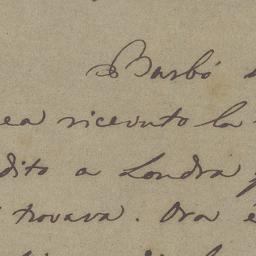 Barbó
ea ricevuto la
dito a Londra
trovava. Ora è